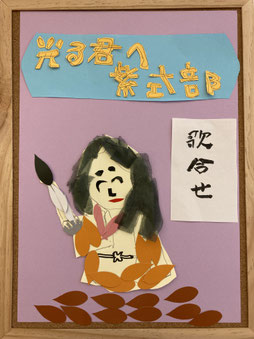 光る君へ
紫式部
歌合せ